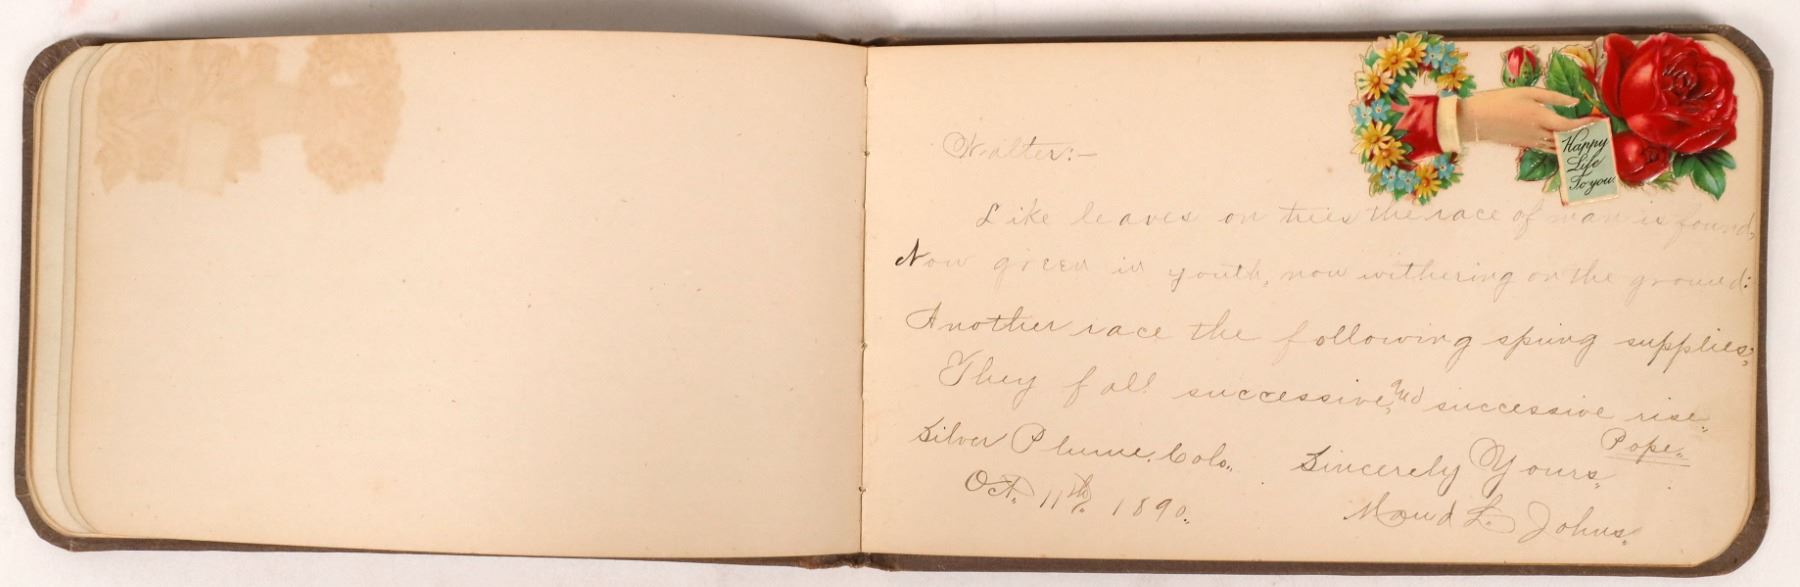 Happy
Life
To you.
Walter:-
Like leaves on trees the race of man is found,
Now green in youth, now withering on the ground:
Another race the following spring supplies,
They fall successive, and successive rise.
Pope.
Silver Plume, Colo.
Sincerely Yours,
Oct. 11th, 1890.
Maud L. Johns.